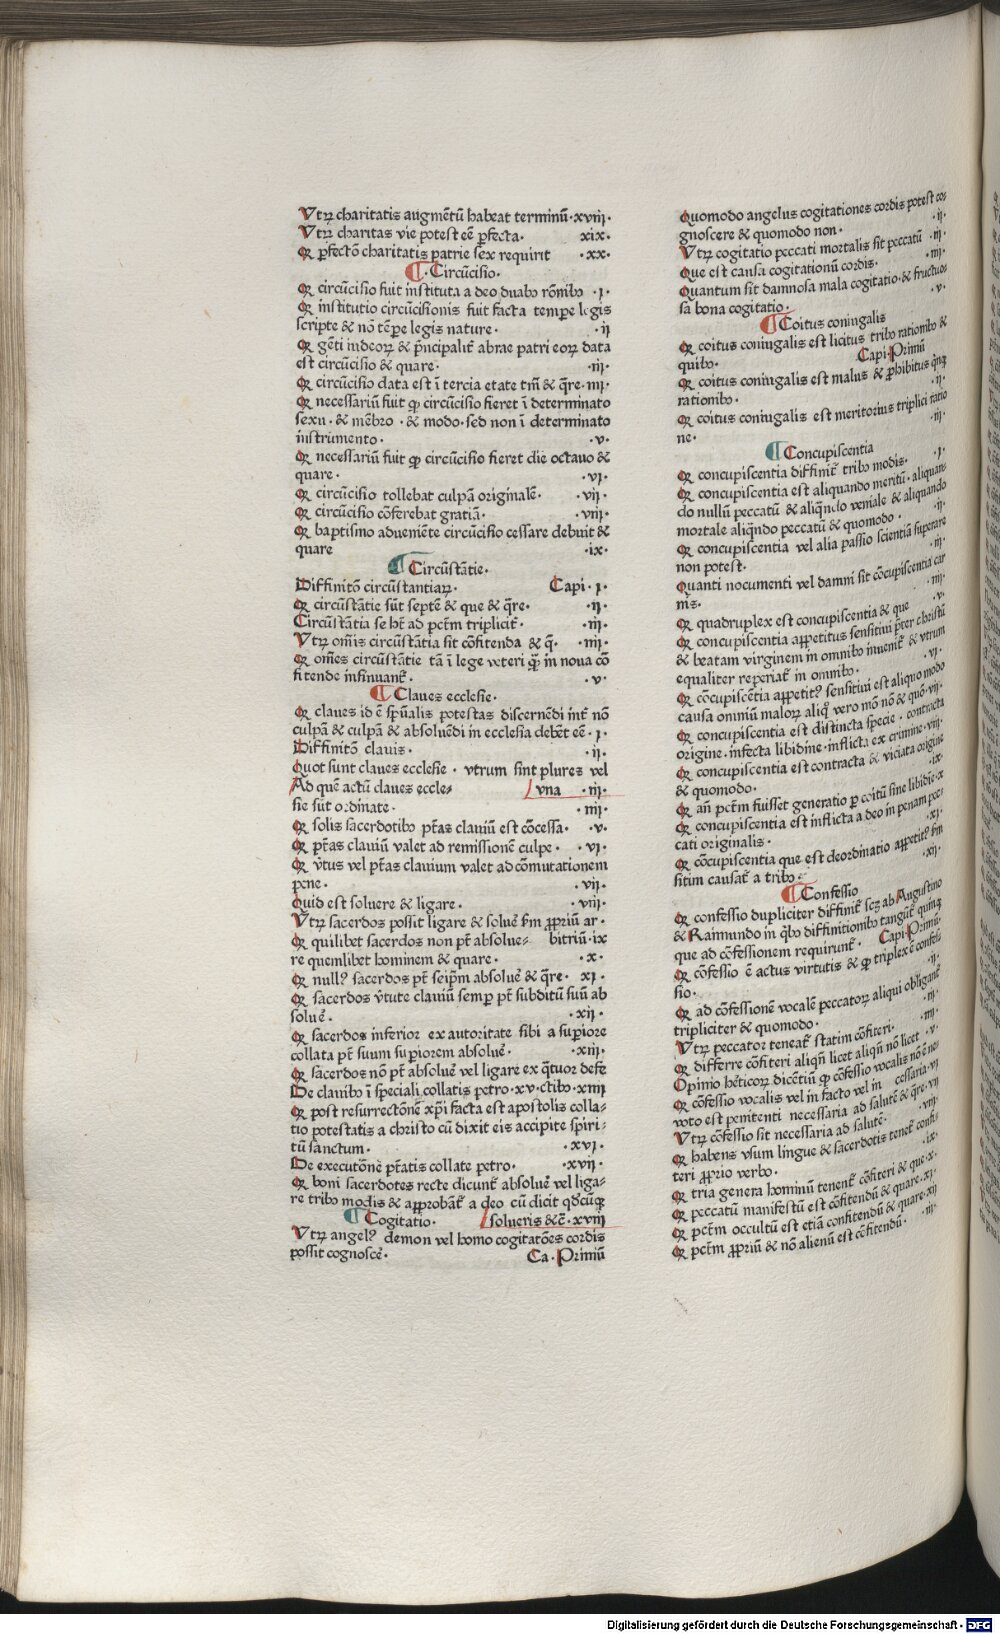 Vtrꝝ charitatis augmētū habeat terminū·xviii·
Vtrꝝ charitas vie potest eē ꝑfecta· xix·
Ꝙ ꝑfectō charitatis patrie sex requirit ·xx·
¶·Circūcisio·
Ꝙ circūcisio fuit instituta a deo duabꝰ rōnibꝰ ·i·
Ꝙ institutio circūcisionis fuit facta tempore legis
scripte & nō tēpe legis nature· ·ii
Ꝙ gēti iudeoꝝ & ṗncipalit̄ abrae patri eoꝝ data
est circūcisio & quare· ·iii·
Ꝙ circūcisio data est ī tercia etate tm̄ & q̄re·iiii·
Ꝙ necessariū fuit ꝙ circūcisio fieret ī determinato
sexu·& mēbro·& modo·sed non ī determinato
instrumento· ·v·
Ꝙ necessariū fuit ꝙ circūcisio fieret die octauo &
quare· ·vi·
Ꝙ circūcisio tollebat culpā originalē· ·vii·
Ꝙ circūcisio cōferebat gratiā· ·viii·
Ꝙ baptismo adueniēte circūcisio cessare debuit &
quare ·ix·
¶Circūstātie·
Diffinitō circūstantiaꝝ· Capi·i·
Ꝙ circūstātie sūt septē & que & q̄re· ·ii·
Circūstātia se hꝫ ad pctm̄ triplicit̄· ·iii·
Vtrꝝ om̄is circūstātia sit cōfitenda & q̄· ·iiii·
Ꝙ om̄es circūstātie tā ī lege veteri q̄ꝫ in noua cō
fitende insinuant̄· ·v·
¶Claues ecclesie·
Ꝙ claues id ē spūalis potestas discernēdi int̄ nō
culpā & culpā & absoluēdi in ecclesia debēt eē·i·
Diffinitō clauis· ·ii·
Quot sunt claues ecclesie· vtrum sint plures vel
Ad quē actū claues eccle⸗ vna ·iii·
sie sūt ordinate· ·iiii·
Ꝙ solis sacerdotibꝰ ptās clauiū est cōcessa· ·v·
Ꝙ ptās clauiū valet ad remissionē culpe· ·vi·
Ꝙ v̄tus vel ptās clauium valet ad cōmutationem
pene· ·vii·
Quid est soluere & ligare· ·viii·
Vtrꝝ sacerdos possit ligare & soluē ẜm ꝓpriū ar·
Ꝙ quilibet sacerdos non pt̄ absolue⸗ bitriū·ix
re quemlibet hominem & quare· ·x·
Ꝙ nullꝰ sacerdos pt̄ seipm̄ absoluē & q̄re· xi·
Ꝙ sacerdos v̄tute clauiū semꝑ pt̄ subditū suū ab
soluē· ·xii·
Ꝙ sacerdos inferior ex autoritate sibi a suꝑiore
collata pt̄ suum suꝑiorem absoluē· ·xiii·
Ꝙ sacerdos nō pt̄ absoluē vel ligare ex q̄tuor defe
De clauibꝰ ī speciali collatis petro·xv·ctibꝰ·xiiii
Ꝙ post resurrectōnē xp̄i facta est apostolis colla⸗
tio potestatis a christo cū dixit eis accipite spiri⸗
tū sanctum· ·xvi·
De executōne ptātis collate petro· ·xvii·
Ꝙ boni sacerdotes recte dicunt̄ absoluē vel liga⸗
re tribꝰ modis & aꝓbāt̄ a deo cū dicit qd̄cūqꝫ
¶Cogitatio· solueris &c̄·xviii
Vtrꝝ angelꝰ demon vel homo cogitatōes cordis
possit cognoscē· Ca·Primū
Quomodo angelus cogitationes cordis potest co⸗
gnoscere & quomodo non· ·ii·
Vtrꝝ cogitatio peccati mortalis sit peccatū ·iii·
Que est causa cogitationū cordis· ·iiii·
Quantum sit damnosa mala cogitatio·& fructuo
sa bona cogitatio· ·v·
¶Coitus coniugalis
Ꝙ coitus coniugalis est licitus tribꝰ rationibꝰ &
quibꝰ· Capi·Primū
Ꝙ coitus coniugalis est malus & ꝓhibitus q̄nqꝫ
rationibꝰ· ·ii·
Ꝙ coitus coniugalis est meritorius triplici ratio
ne· ·iii·
¶Concupiscentia
Ꝙ concupiscentia diffinit̄ tribꝰ modis· ·i·
Ꝙ concupiscentia est aliquando meritū·aliquan
do nullū peccatū & aliqn̄do veniale & aliquando
mortale aliqn̄do peccatū & quomodo· ·ii·
Ꝙ concupiscentia vel alia passio scientiā superare
non potest· ·iii·
Quanti nocumenti vel damni sit cōcupiscentia car
nis· ·iiii·
Ꝙ quadruplex est concupiscentia & que ·v·
Ꝙ concupiscentia appetitus sensitiui p̄ter christū
& beatam virginem in omnibꝰ inuenit̄ & vtrum
equaliter reperiat̄ in omnibꝰ· ·vi·
Ꝙ cōcupiscētia appetitꝰ sensitiui est aliquo modo
causa omniū maloꝝ aliq̄ vero mō nō & quō·vii·
Ꝙ concupiscentia est distincta specie·contracta
origine·infecta libidine·inflicta ex crimine·viii·
Ꝙ concupiscentia est contracta & viciata origine
& quomodo· ·ix·
Ꝙ an̄ pctm̄ fuisset generatio ꝑ coitū sine libidīe·x
Ꝙ concupiscentia est inflicta a deo in penam pec⸗
cati originalis· ·xi·
Ꝙ cōcupiscentia que est deordinatio appetitꝰ ẜm
sitim causat̄ a tribꝰ· ·xii·
¶Confessio
Ꝙ confessio dupliciter diffinit̄ scꝫ ab Augustino
& Raimundo in q̄bꝰ diffinitionibꝰ tangūt̄ quinqꝫ
que ad cōfessionem requirunt̄· Capi·Primū·
Ꝙ cōfessio ē actus virtutis & ꝙ triplex ē confes⸗
sio· ·ii·
Ꝙ ad cōfessionē vocalē peccatoꝝ aliqui obligant̄
tripliciter & quomodo· ·iii·
Vtrꝝ peccator teneat̄ statim cōfiteri· ·iiii·
Ꝙ differre cōfiteri aliqn̄ licet aliqn̄ nō licet ·v·
Opinio hēticoꝝ dicētiū ꝙ cōfessio vocalis nō ē ne⸗
Ꝙ cōfessio vocalis vel in facto vel in cessaria·vi
voto est penitenti necessaria ad salutē & q̄re·vii
Vtrꝝ cōfessio sit necessaria ad salutē· ·viii·
Ꝙ habens vsum lingue & sacerdotis tenet̄ confi⸗
teri ꝓprio verbo· ·ix·
Ꝙ tria genera hominū tenent̄ cōfiteri & que·x·
Ꝙ peccatū manifestū est cōfitendū & quare·xi·
Ꝙ pctm̄ occultū est etiā confitendū & quare·xii
Ꝙ pctm̄ ꝓpriū & nō alienū est cōfitendū· ·iii·
Digitalisierung gefördert durch die Deutsche Forschungsgemeinschaft - DFG